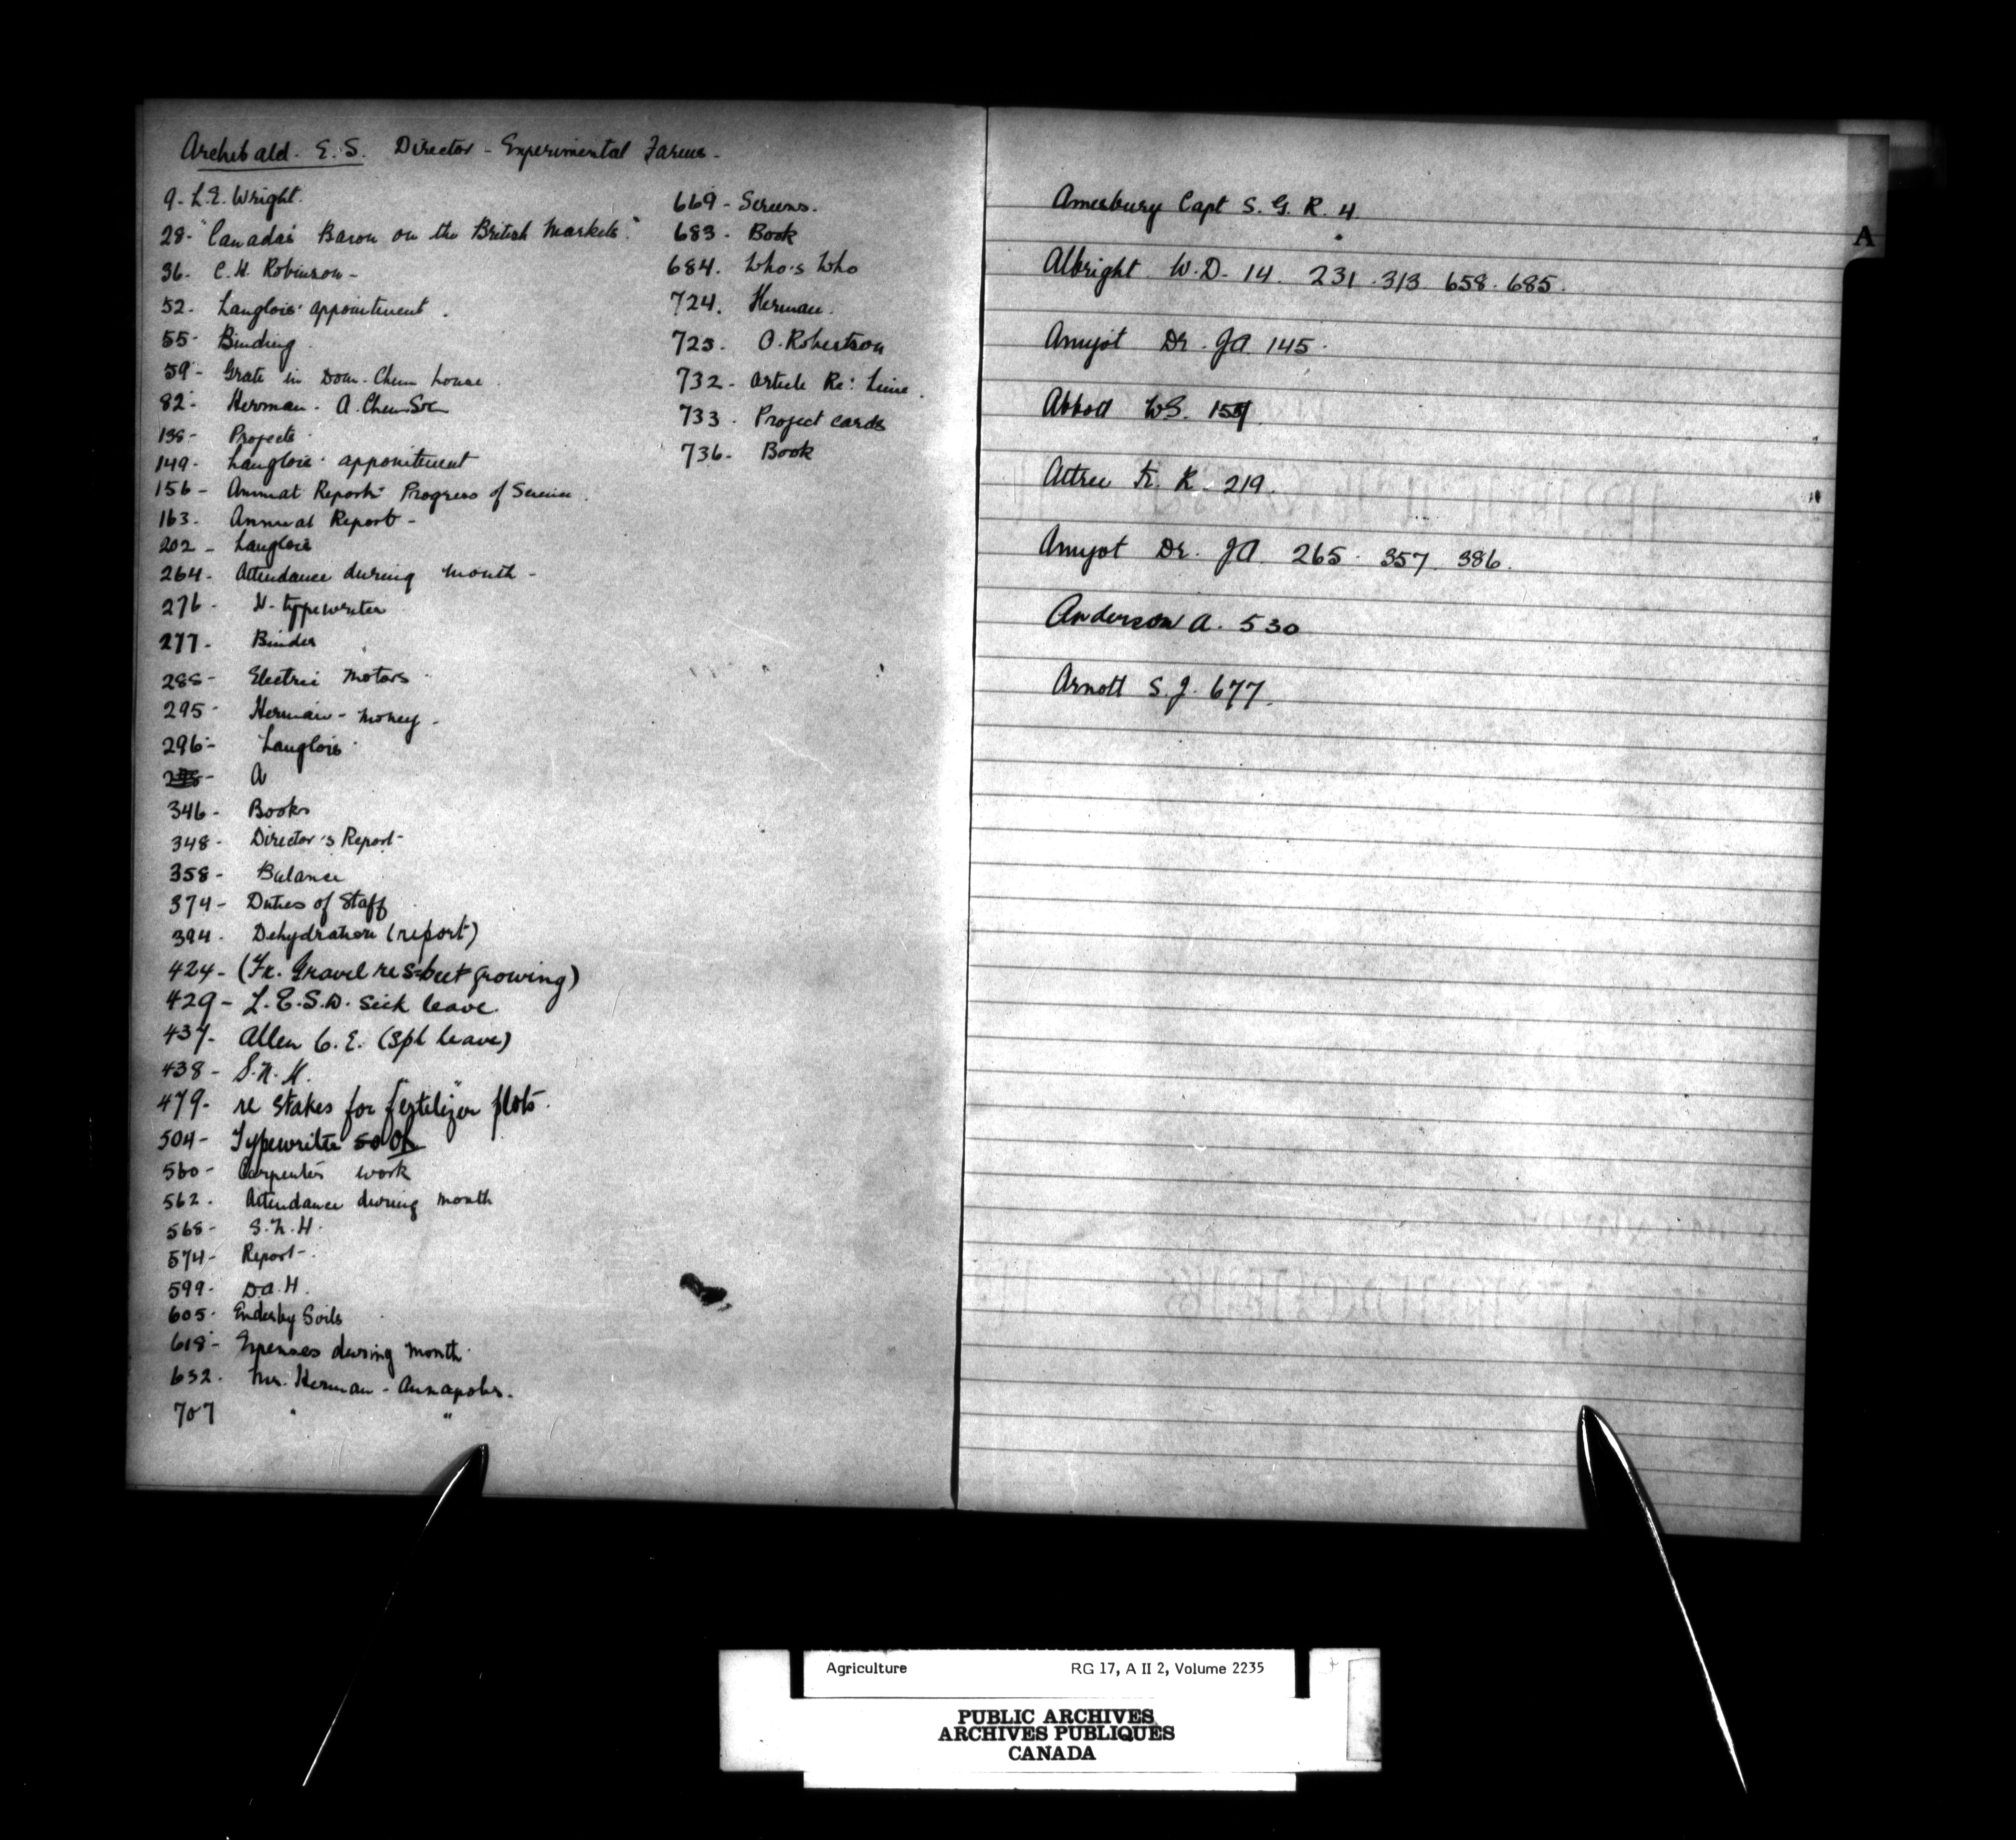 Archibald. E.S. Director - Experimental Farms -
9- L.E. Wright.
28- "Canada's Bacon on the British Markets."
36- C.H. Robinson -
52. Langlois' appointment.
55- Binding.
59- Grate in Dom. Chem house.
82- Herman - A. Chem Soc
138- Projects.
149- Langlois' appointment
156- Annual Report - Progress of Service.
163. Annual Report -
202 - Langlois
264- Attendance during month -
276- N- typewriter
277. Binder
288- Electric Motors
295- Herman - money -
296- Langlois
A
346- Books
348- Director's Report -
358- Balance
374- Duties of Staff
394- Dehydration (report)
424- (Fr. Gravel re S-beet growing)
429- L.E.S.W. sick leave
437- Allen C.E. (Spl leave)
438- S.N.H.
479- re stakes for fertilizer plots.
504- Typewriter
560- Carpenter's work
562- Attendance during month
568- S.N.H.
574- Report -
599- D.A.H.
605- Enderby Soils
618- Expenses during month
632. Mr. Herman - Annapolis.
707 " "
669- Screens.
683- Book
684. Who's Who
724. Herman.
725. O. Robertson
732- Article Re: Lime.
733. Project cards
736- Book
A
Amesbury Capt S. G. R. 4
Albright W.D. 14. 231. 313 658. 685.
Amyot Dr. JA 145.
Abbott WS.
Attree Fr. K. 219.
Amyot Dr. JA 265. 357. 386.
Anderson A. 530
Arnott S. J. 677.
Agriculture RG 17, A II 2, Volume 2235
PUBLIC ARCHIVES
ARCHIVES PUBLIQUES
CANADA